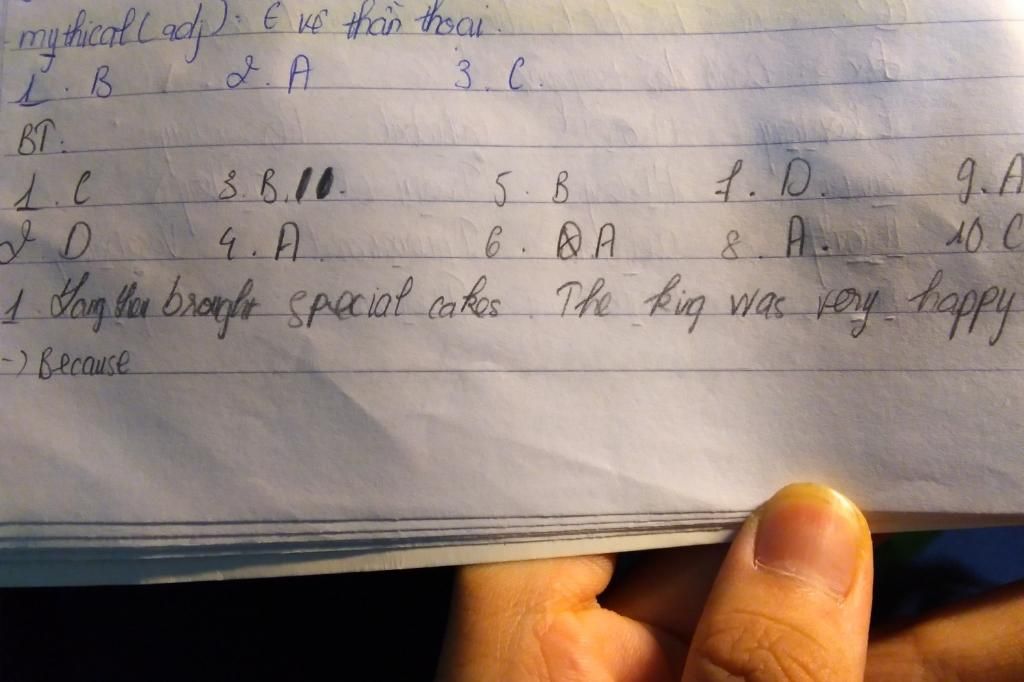 mythical (adj): € về thần thoại.
1. B 2. A 3. C.
BT:
1. C 3. B. 5. B 7. D. 9. A
2 D 4. A 6. A 8. A. 10 C
1 brought special cakes. The king was very happy
-) Because